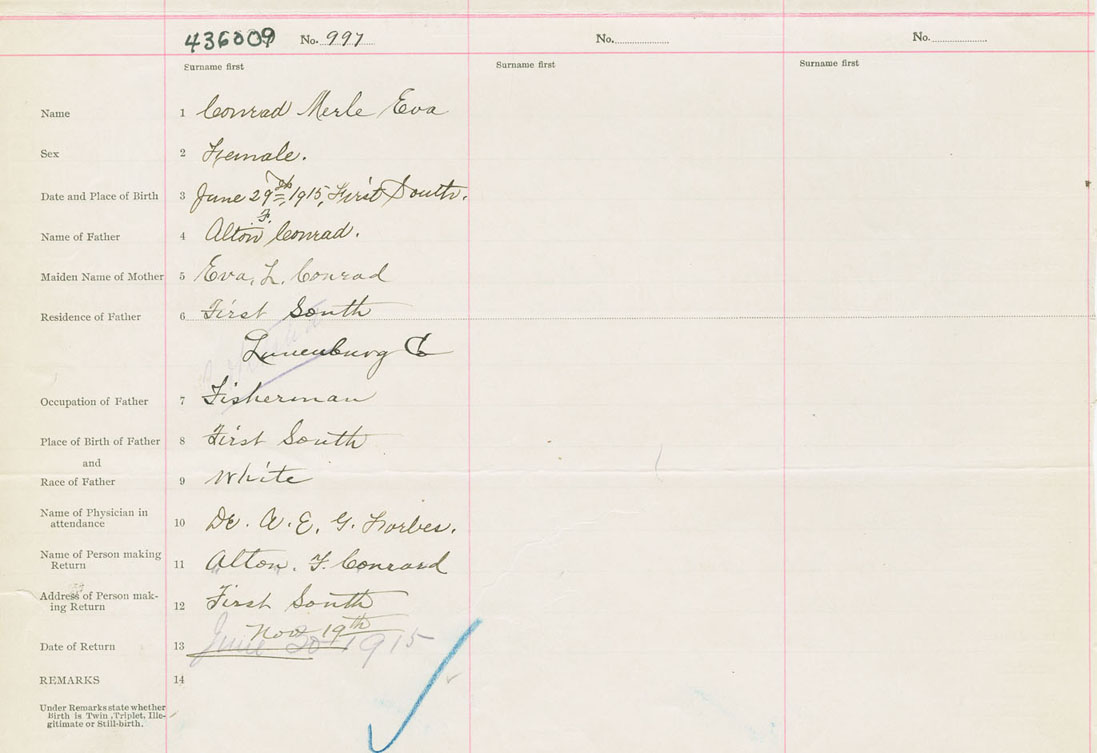 436009 No. 997 No. No.
Surname first Surname first Surname first
Name 1 Conrad Merle Eva
Sex 2 Female.
Date and Place of Birth 3 June 29th, 1915, First South.
Name of Father 4 Alton F. Conrad.
Maiden Name of Mother 5 Eva. L. Conrad
Residence of Father 6 First South
Lunenburg Co
Occupation of Father 7 Fisherman
Place of Birth of Father 8 First South
and
Race of Father 9 White
Name of Physician in
attendance 10 Dr. W. E. G. Forbes.
Name of Person making
Return 11 Alton. F. Conrard
Address of Person mak-
ing Return 12 First South
Nov 19th
Date of Return 13 June 30 1915
REMARKS 14
Under Remarks state whether
Birth is Twin, Triplet, Ille-
gitimate or Still-birth.